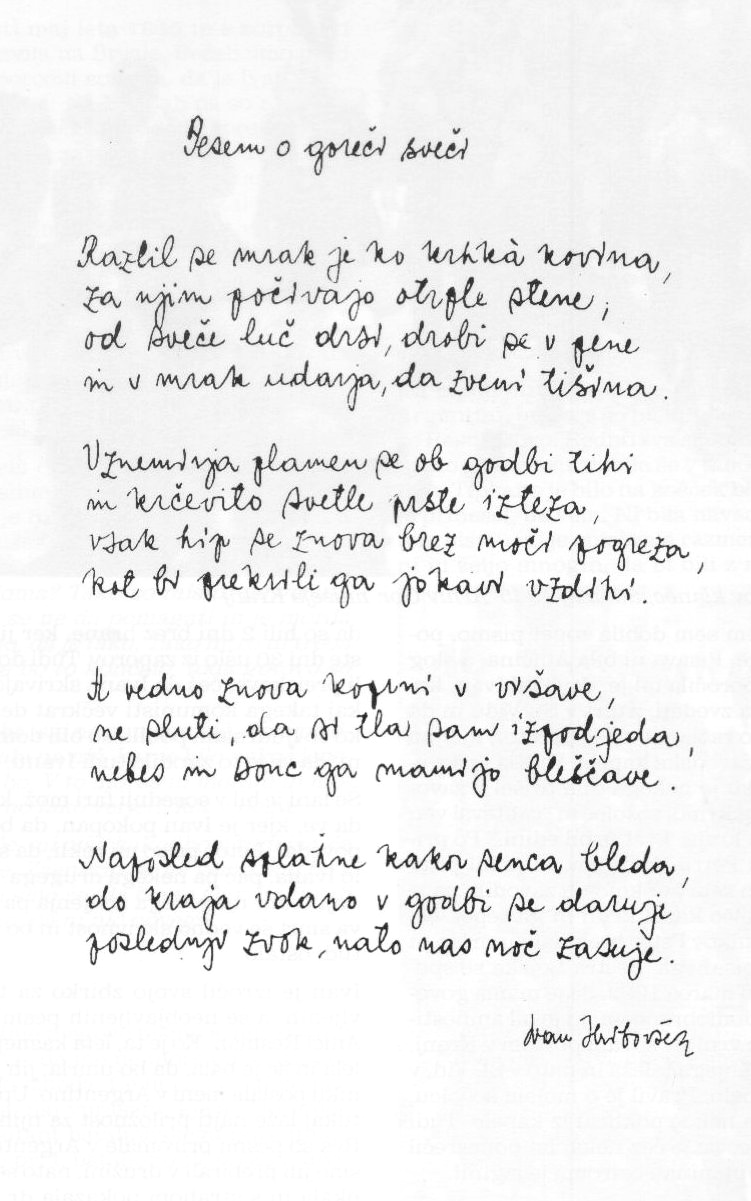 Pesem o goreči sveči
Razlil se mrak je ko krhkà kovina,
za njim počivajo otrple stene,
od sveče luč drsi, drobi se v pene
in v mrak udarja, da zveni tišina.
Vznemirja plamen se ob godbi tihi
in krčevito svetle prste izteza,
vsak hip se znova brez moči pogreza,
kot bi prekrili ga jokavi vzdihi.
A vedno znova koprni v višave,
ne sluti, da si tla sam izpodjeda,
nebes in sonc ga mamijo bleščave.
Naposled splahne kakor senca bleda,
do kraja vdano v godbi se daruje
poslednji zvok, nato nas noč zasuje.
Ivan Hribovšek